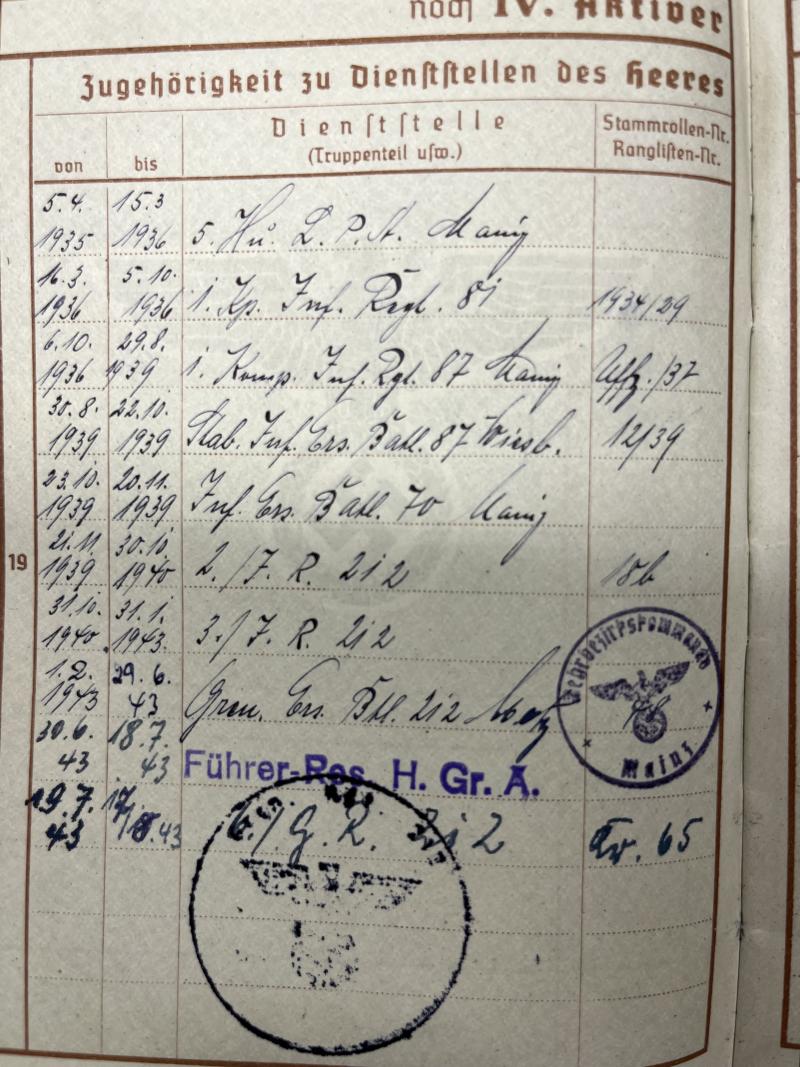 noch IV. Aktiver
Zugehörigkeit zu Dienststellen des Heeres
von bis Dienststelle (Truppenteil usw.) Stammrollen-Nr. Ranglisten-Nr.
5.4. 15.3
1935 1936 5. L. P. A. Mainz
16.3. 5.10.
1936 1936 1. Kp. Inf. Regt. 81 1934/29
6.10. 29.8.
1936 1939 1. Komp. Inf. Rgt. 87 Mainz Uffz./37
30.8. 22.10.
1939 1939 Stab. Inf. Ers. Batl. 87 Wiesb. 12/39
23.10. 20.11.
1939 1939 Inf. Ers. Batl. 70 Mainz
21.11. 30.10.
19
1939 1940 2./I. R. 212 18b
31.10. 31.1.
1940 1943 3./I. R. 212
1.2. 29.6.
1943 43 Gren. Ers. Btl. 212 Metz
30.6. 18.7.
43 43 Führer-Res. H. Gr. A.
19.7. 17.
43 43 6./G. R. 212 65
Wehrbezirkskommando
Mainz